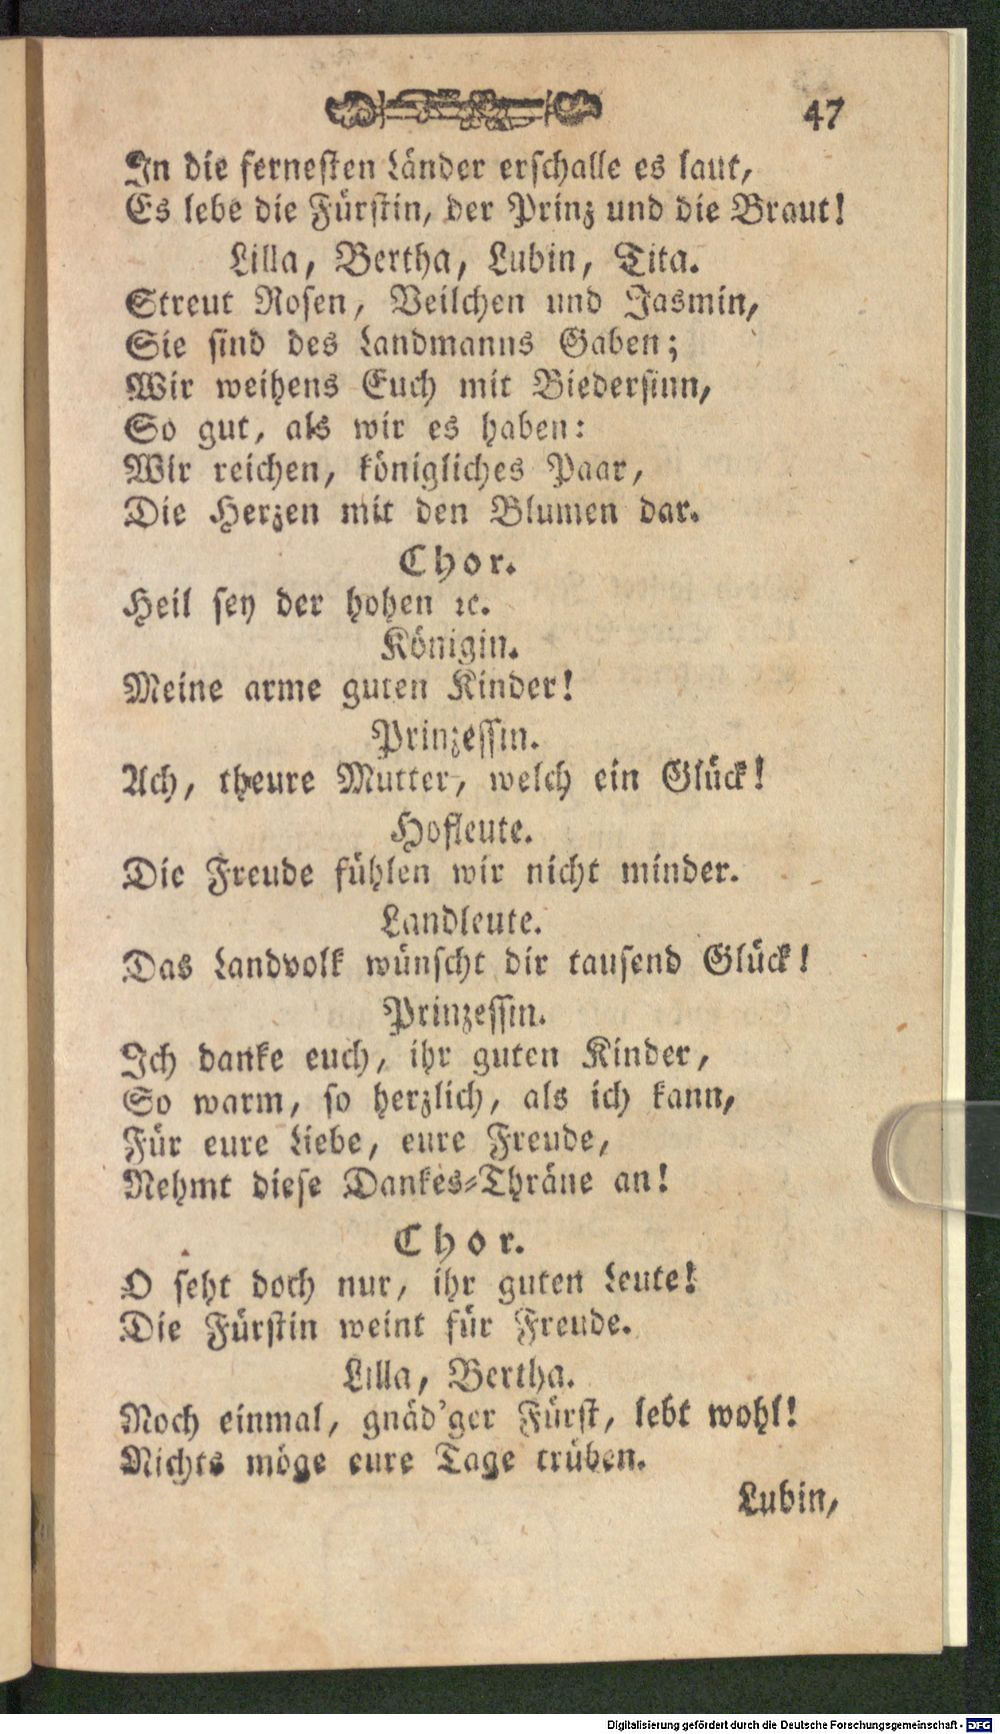 47
In die fernesten Länder erschalle es laut,
Es lebe die Fürstin, der Prinz und die Braut!
Lilla, Bertha, Lubin, Tita.
Streut Rosen, Veilchen und Jasmin,
Sie sind des Landmanns Gaben;
Wir weihens Euch mit Biedersinn,
So gut, als wir es haben:
Wir reichen, königliches Paar,
Die Herzen mit den Blumen dar.
Chor.
Heil sey der hohen ꝛc.
Königin.
Meine arme guten Kinder!
Prinzessin.
Ach, theure Mutter, welch ein Glück!
Hofleute.
Die Freude fühlen wir nicht minder.
Landleute.
Das Landvolk wünscht dir tausend Glück!
Prinzessin.
Ich danke euch, ihr guten Kinder,
So warm, so herzlich, als ich kann,
Für eure Liebe, eure Freude,
Nehmt diese Dankes-Thräne an!
Chor.
O seht doch nur, ihr guten Leute!
Die Fürstin weint für Freude.
Lilla, Bertha.
Noch einmal, gnäd'ger Fürst, lebt wohl!
Nichts möge eure Tage trüben.
Lubin,
Digitalisierung gefördert durch die Deutsche Forschungsgemeinschaft - DFG